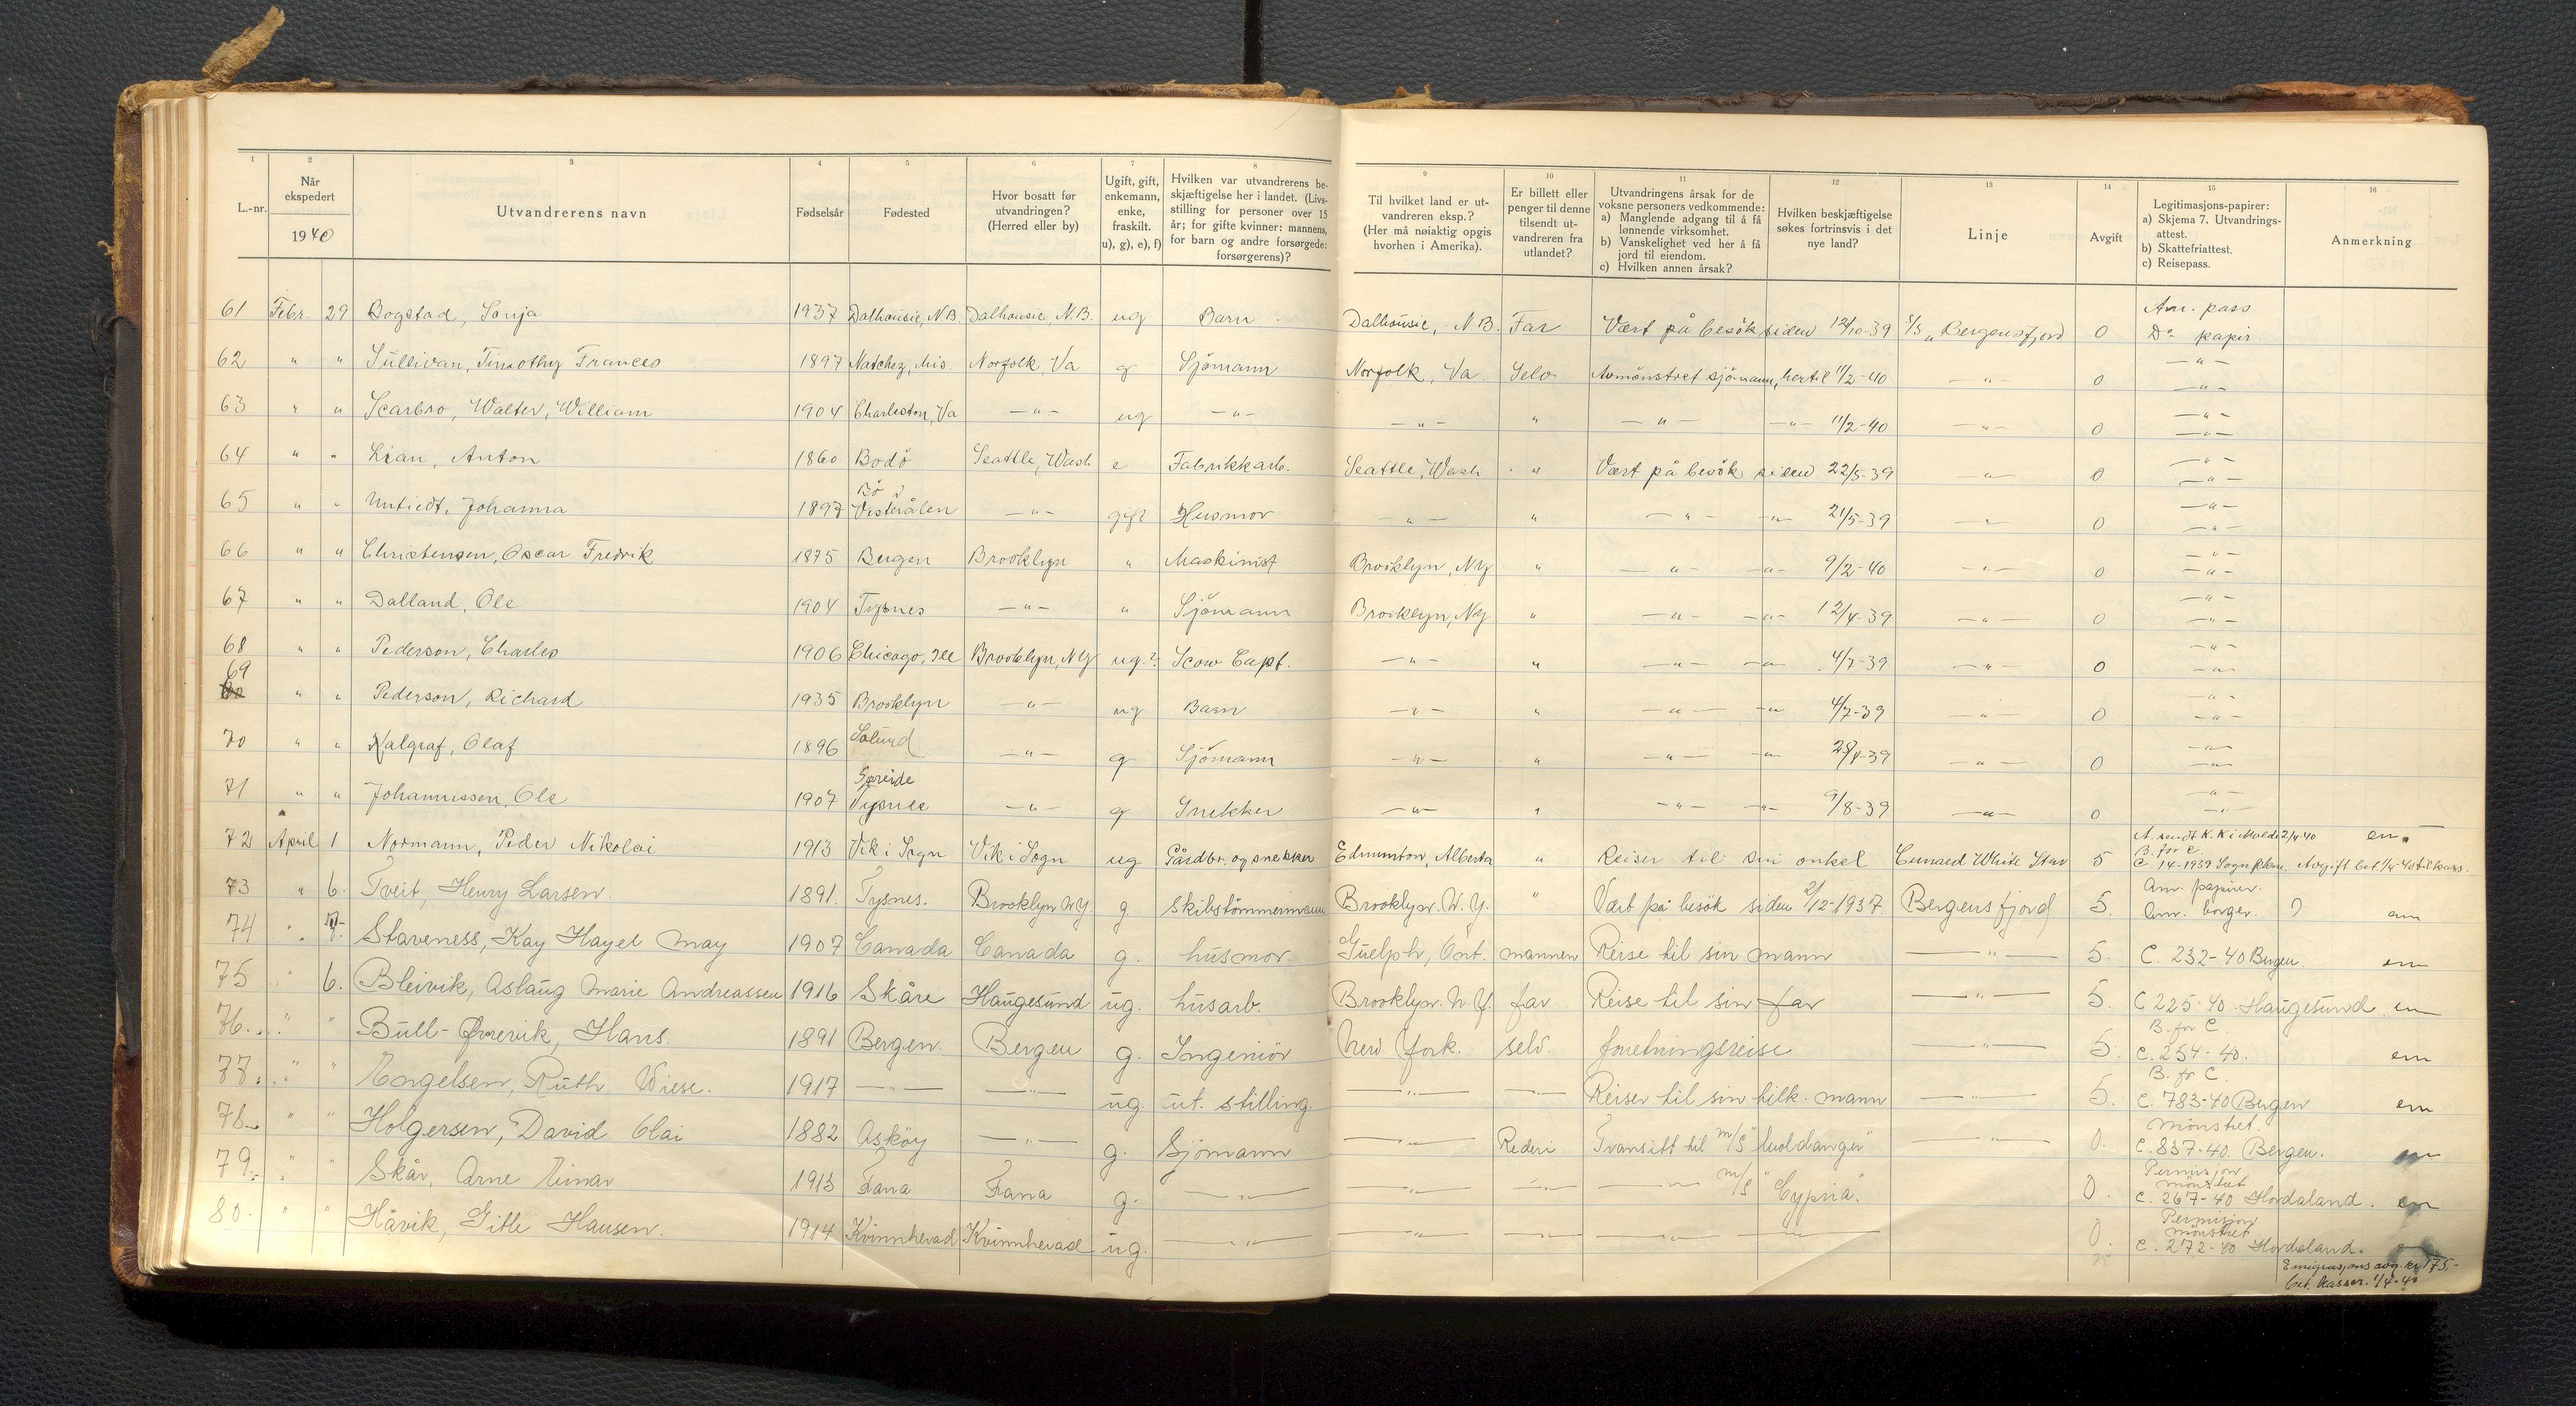 1 2 3 4 5 6 7 8 9 10 11 12 13 14 15 16
L.-nr. | Når ekspedert 1940 | Utvandrerens navn | Fødselsår | Fødested | Hvor bosatt før utvandringen? (Herred eller by) | Ugift, gift, enkemann, enke, fraskilt. u), g), e), f) | Hvilken var utvandrerens beskjæftigelse her i landet. (Livsstilling for personer over 15 år; for gifte kvinner: mannens, for barn og andre forsørgede: forsørgerens)? | Til hvilket land er utvandreren eksp.? (Her må nøiaktig opgis hvorhen i Amerika). | Er billett eller penger til denne tilsendt utvandreren fra utlandet? | Utvandringens årsak for de voksne personers vedkommende: a) Manglende adgang til å få lønnende virksomhet. b) Vanskelighet ved her å få jord til eiendom. c) Hvilken annen årsak? | Hvilken beskjæftigelse søkes fortrinsvis i det nye land? | Linje | Avgift | Legitimasjons-papirer: a) Skjema 7. Utvandringsattest. b) Skattefriattest. c) Reisepass. | Anmerkning
61 Febr. 29 Bogstad, Sonja 1937 Dalhousie, N.B. Dalhousie, N.B. ug Barn Dalhousie, N.B. Far Vært på besök siden 12/10-39 5/3 "Bergensfjord 0 Am. pass Do papir
62 " " Sullivan, Timothy Frances 1897 Natchez, Mis. Norfolk, Va g Sjömann Norfolk, Va. Selv Avmönstret sjömann, hertil 11/2-40 -"- 0 -"- -"-
63 " " Scarbro, Walter, William 1904 Charleston, Va -"- ug -"- -"- " -"- -"- 11/2-40 -"- 0 -"- -"-
64 " " Lian, Anton 1860 Bodö Seattle, Wash e Fabrikkarb. Seattle, Wash " Vært på besök siden 22/5-39 -"- 0 -"- -"-
65 " " Untiedt, Johanna 1897 Bö i Vesterålen -"- gift Husmor -"- " -"- -"- 21/5-39 -"- 0 -"- -"-
66 " " Christensen, Oscar Fredrik 1875 Bergen Brooklyn " Maskinist Brooklyn, NY " -"- -"- 9/2-40 -"- 0 -"- -"-
67 " " Dalland, Ole 1904 Tysnes -"- " Sjömann Brooklyn, NY " -"- -"- 12/4-39 -"- 0 -"- -"-
68 " " Pederson, Charles 1906 Chicago, Ill Brooklyn, NY ug.? Scow Capt. -"- " -"- -"- 4/7-39 -"- 0 -"- -"-
69 " " Pederson, Richard 1935 Brooklyn -"- ug Barn -"- " -"- -"- 4/7-39 -"- 0 -"- -"-
70 " " Nalgraf, Olaf 1896 Solund -"- g Sjömann -"- " -"- -"- -39 -"- 0 -"- -"-
71 " " Johannessen, Ole 1907 Søreide Tysnes -"- g Snekker -"- " -"- -"- 9/8-39 -"- 0 -"- -"-
72 April 1 Normann, Peder Nikolai 1913 Vik i Sogn Vik i Sogn ug Gårdbr. og snekker Edmunton, Alberta " Reiser til sin onkel Cunard White Star 5 A. sendt K. K i Molde 2/4-40 B. for C. C 14-1939 Sogn Avgift bet. 1/4-40 til kass.
73 " 6. Tveit, Henry Larsen. 1891. Tysnes. Brooklyn N.Y. g. Skibstömmermann Brooklyn. N.Y. " Vært på besök siden 2/12-1937 Bergensfjord 5. Am. papirer. Am. borger.
74 " Staveness, Kay Hayel May 1907 Canada Canada g. husmor. Guelph, Ont. mannen Reise til sin mann -"- 5. C. 232-40 Bergen.
75 " 6. Bleivik, Aslaug Marie Andreassen 1916 Skåre Haugesund ug. husarb. Brooklyn. N.Y. far Reise til sin far -"- 5. C 225-40. Haugesund
76. " " Bull-Ørrevik, Hans. 1891 Bergen. Bergen g. Ingeniör New York. selv. foretningsreise -"- 5. B. for C. C. 254-40.
77. " " Engelsen, Ruth Wiese. 1917 -"- -"- ug. ut. stilling. -"- -"- Reiser til sin tilk. mann -"- 5. B. for C. C. 783-40 Bergen
78. " " Holgersen, David Olai 1882 Asköy -"- g. Sjömann -"- Rederi Transitt til m/S "Moldanger" -"- 0. Mönstret. C. 837-40. Bergen.
79. " " Skår, Arne Einar 1913 Fana Fana g. -"- -"- -"- -"- m/S "Cypria". 0. Permisjon mönstret C. 267-40 Hordaland.
80. " " Håvik, Gitle Hansen. 1914 Kvinnherad Kvinnherad ug. -"- -"- -"- -"- -"- 0. Permisjon mönstret C. 272-40 Hordaland.
Emigrasjons avg. kr 175.-
bet. kasser. 1/4-40